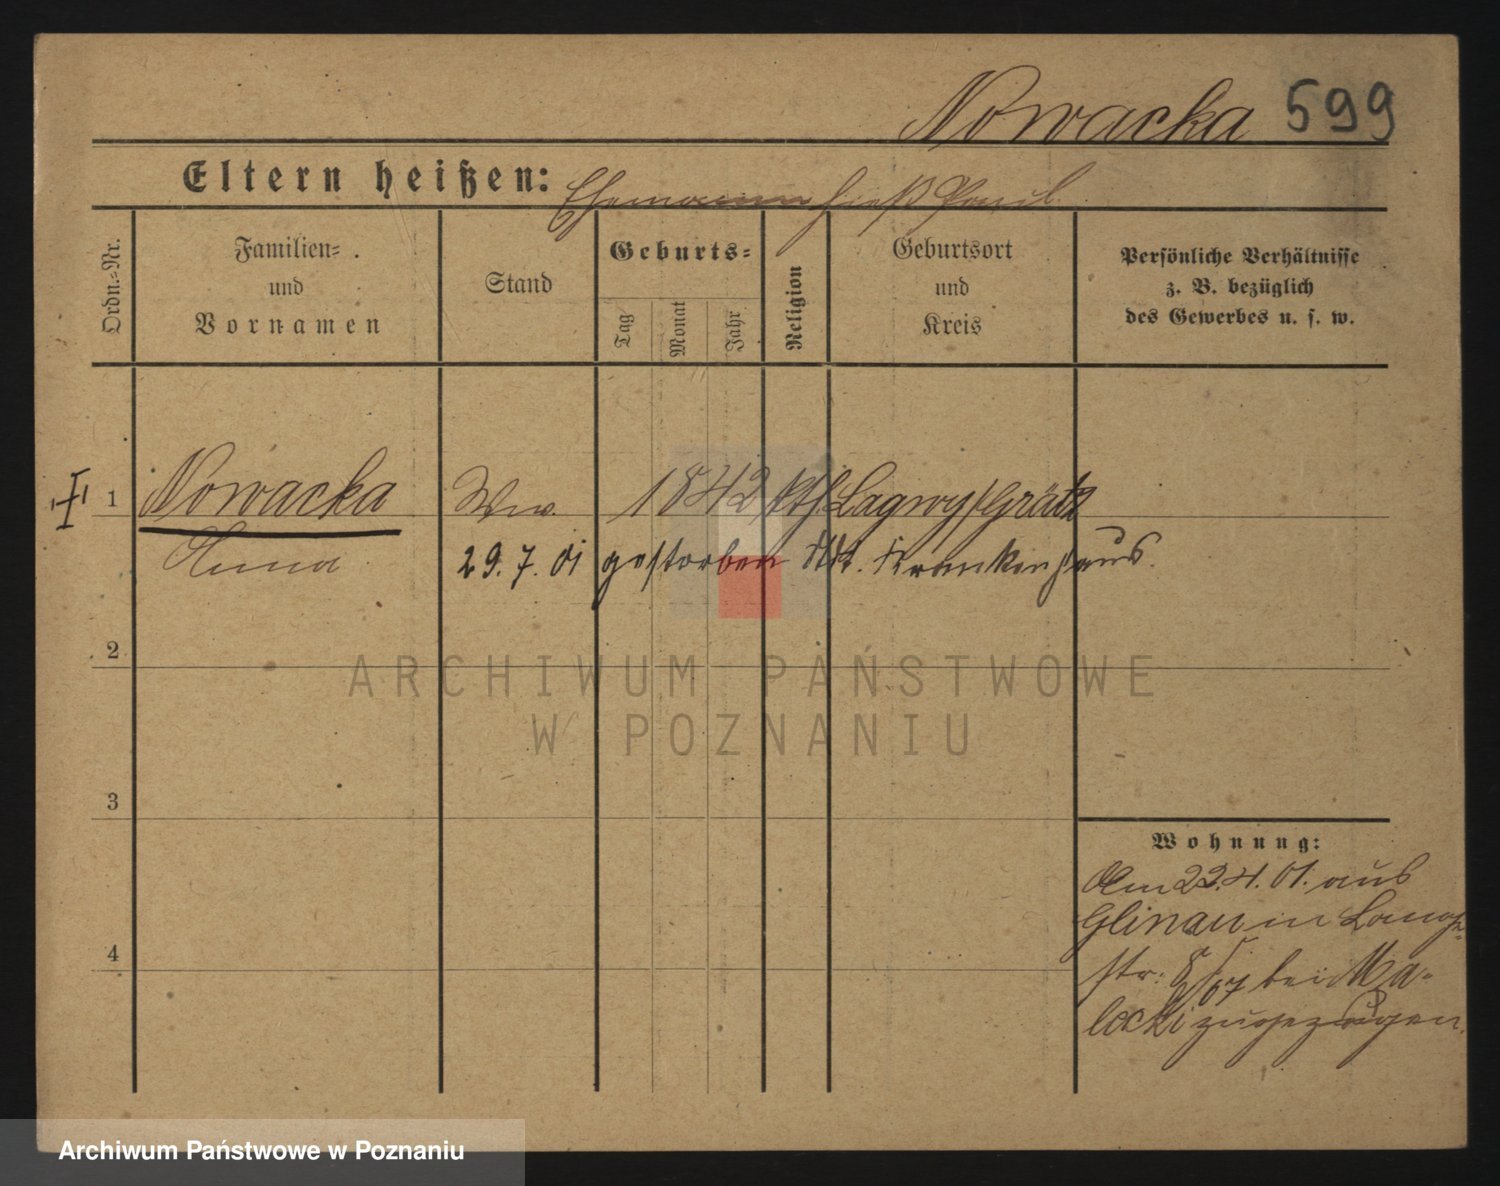 Nowacka 599
Eltern heißen: Ehemann hieß Paul
Ordn.=Nr.
Familien=
und
Vornamen
Stand
Geburts=
Tag
Monat
Jahr
Religion
Geburtsort
und
Kreis
Persönliche Verhältnisse
z. B. bezüglich
des Gewerbes u. s. w.
1 Nowacka Ww. 1842 kth Lagwy/Grätz
Anna 29.7.01 gestorben Stdt. Krankenhaus.
2
3
4
Wohnung:
Am 22.4.01. aus
Glinau in Lange=
str: bei Ma-
lecki zugezogen.
ARCHIWUM PAŃSTWOWE
W POZNANIU
Archiwum Państwowe w Poznaniu